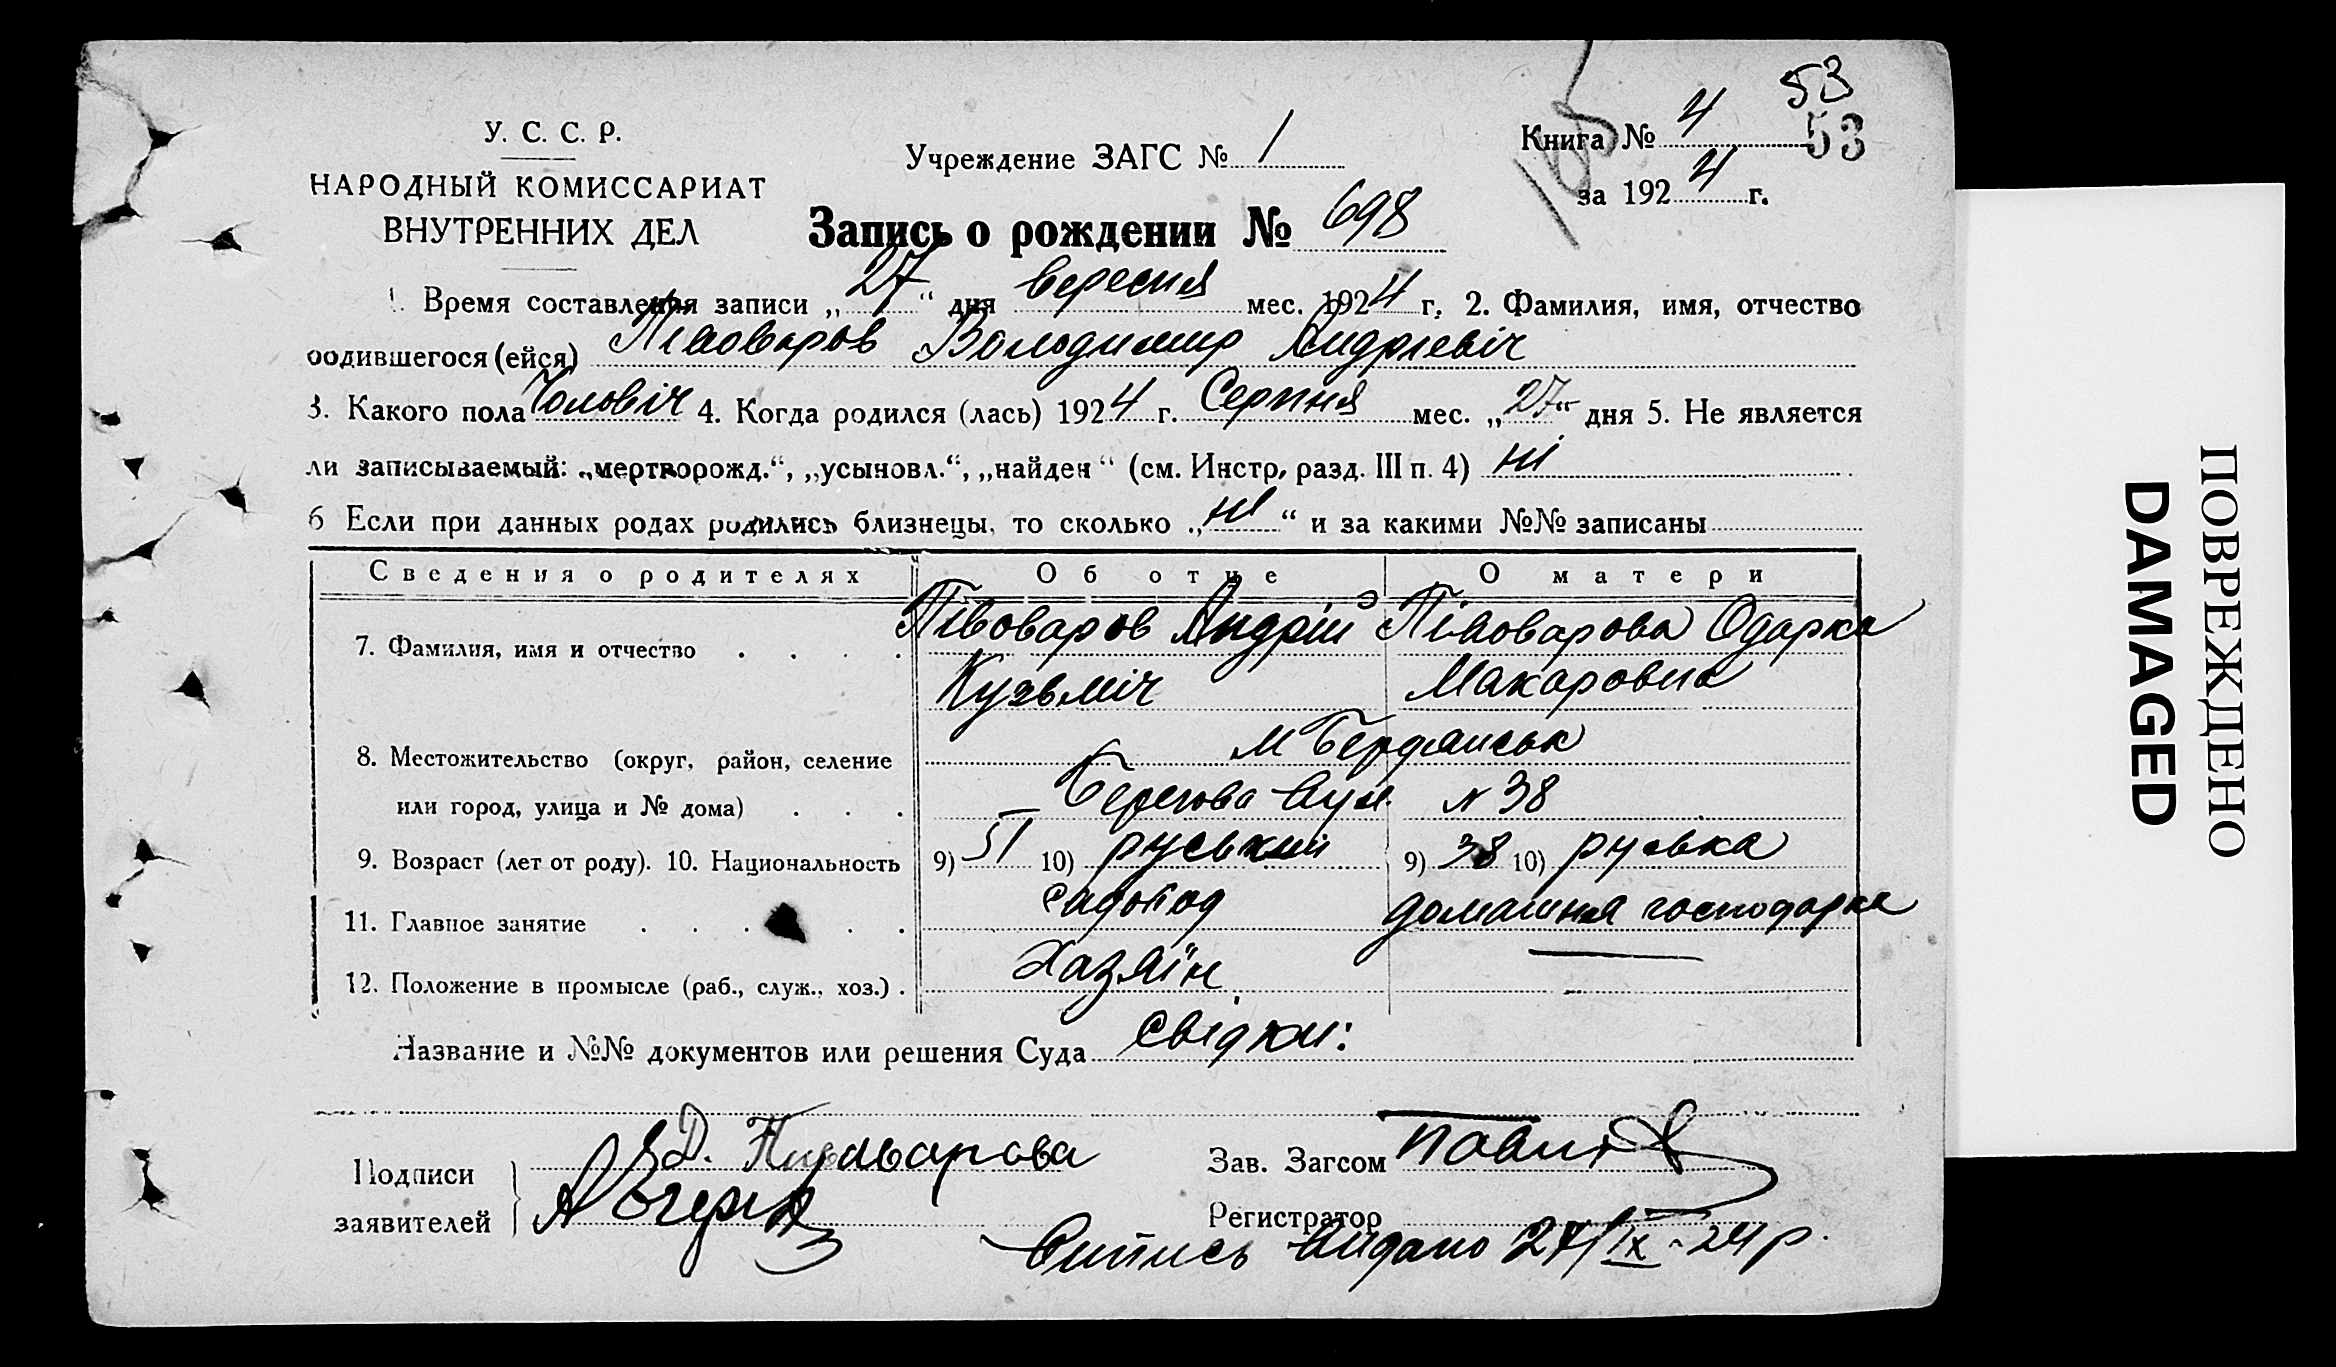 53
У. С. С. Р.
Учреждение ЗАГС № 1
Книга № 4 53
НАРОДНЫЙ КОМИССАРИАТ
ВНУТРЕННИХ ДЕЛ
за 1924 г.
Запись о рождении № 698
1. Время составления записи „27“ дня вересня мес. 1924 г. 2. Фамилия, имя, отчество
родившегося (ейся) Півоваров Володимир Андрієвіч
3. Какого пола Чоловіч 4. Когда родился (лась) 1924 г. Серпня мес. „27“ дня 5. Не является
ли записываемый: „мертворожд.“, „усыновл.“, „найден“ (см. Инстр. разд. III п. 4) ні
6 Если при данных родах родились близнецы, то сколько „ні“ и за какими №№ записаны
Сведения о родителях Об отце О матери
7. Фамилия, имя и отчество . . . . Півоваров Андрій Півоварова Одарка
Кузьміч Макаровна
8. Местожительство (округ, район, селение м Бердянськ
или город, улица и № дома) . . . Берегова вул. № 38
9. Возраст (лет от роду). 10. Национальность 9) 51 10) руський 9) 38 10) руська
11. Главное занятие . . . . . садовод домашня господарка
12. Положение в промысле (раб., служ., хоз.) . Хазяїн
Название и №№ документов или решения Суда Свідки:
Подписи
заявителей
Д. Пивоварова
Зав. Загсом
Регистратор
Випись видано 27/IX-24 р.
ПОВРЕЖДЕНО
DAMAGED